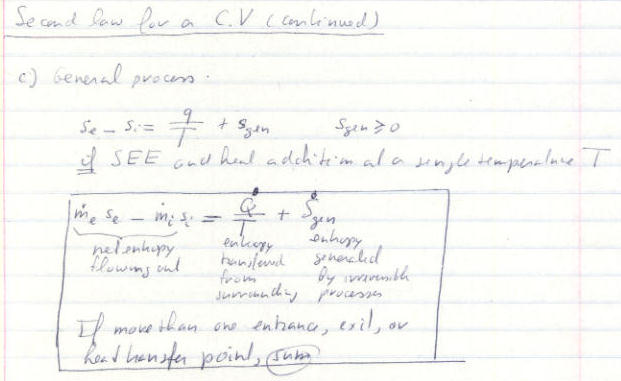 Second law for a C.V (continued)
c) General process.
se - si = q/T + sgen   sgen ≥ 0
if SEE and heat addition at a single temperature T
ṁe se - ṁi si = Q̇/T + Ṡgen
net entropy flowing out
entropy transferred from surrounding
entropy generated by irreversible processes
If more than one entrance, exit, or
heat transfer point, sum